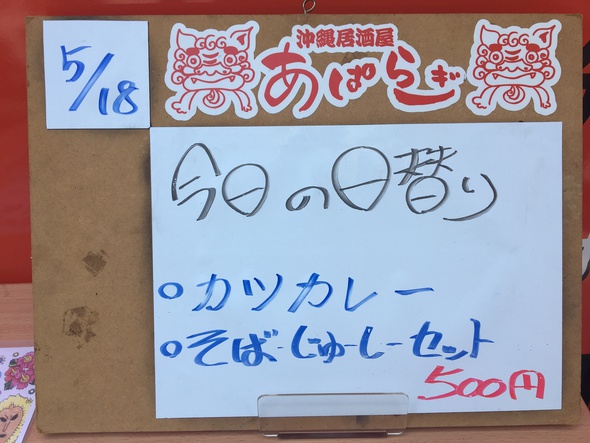 5/18
沖縄居酒屋
あぱらぎ
今日の日替り
○カツカレー
○そば・じゅーしーセット
500円